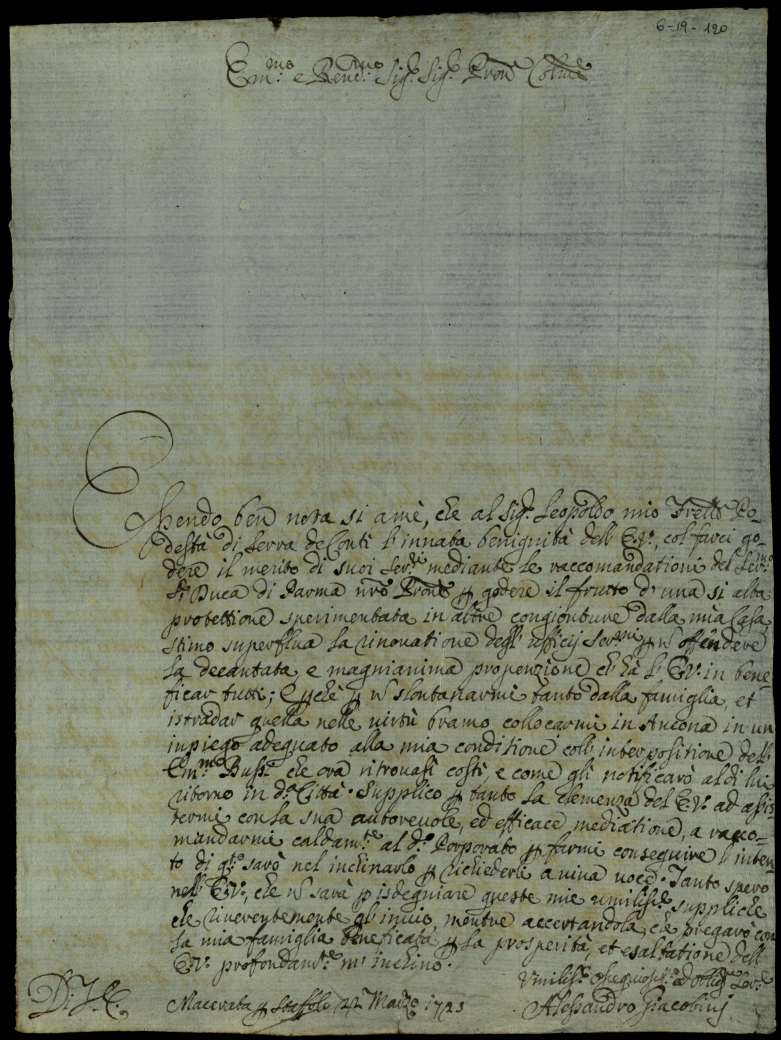 6-19-120
Em.mo e Rend.mo Sig.r Sig.r Pron Colmo
Essendo ben nota si a mè, che al Sig.r Leopoldo mio Fratello Po-
destà di Serra de Conti l'innata benignità dell' E.V., col farci go-
dere il merito di suoi Ser.di mediante le raccomandationi del Ser.mo
Sr. Duca di Parma nrō Prone p godere il frutto d'una si alta
protettione sperimentata in altre congionture dalla mia Casa,
stimo superflua la rinovatione degl' ufficij Ser.mi p nō offendere
la decantata, e magnianima propenzione ch' hà l' E.V. in bene-
ficar tutti; E pchè p nō slontanarmi tanto dalla famiglia, et
istradar quella nelle virtù bramo collocarmi in Ancona in un
impiego adeguato alla mia conditione coll' interpositione dell'
Em.mo Bussi che ora ritrovasi costì e come gli notificarò al di lui
ritorno in d.a Città. Supplico p tanto la clemenza del E.V. ad assis-
termi con la sua autorevole, ed efficace mediatione, a racco-
mandarmi caldam.te al d.o Porporato p farmi conseguire l'inten-
to di q.to sarò nel inchinarlo p richiederli a viva voce. Tanto spero
nell' E.V., che nō sarà p isdegniare queste mie umilissie suppliche
che riverentemente gli invio, mentre accertandola, che pregarò con
la mia famiglia beneficata p la prosperità, et esaltatione dell'
E.V. profondam.te m' inchino.
D. V. E. Macerata p Staffolo 22 Marzo 1723
Umiliss.o Ossequios.o ed obblig. Ser.re
Alessandro Giacobini